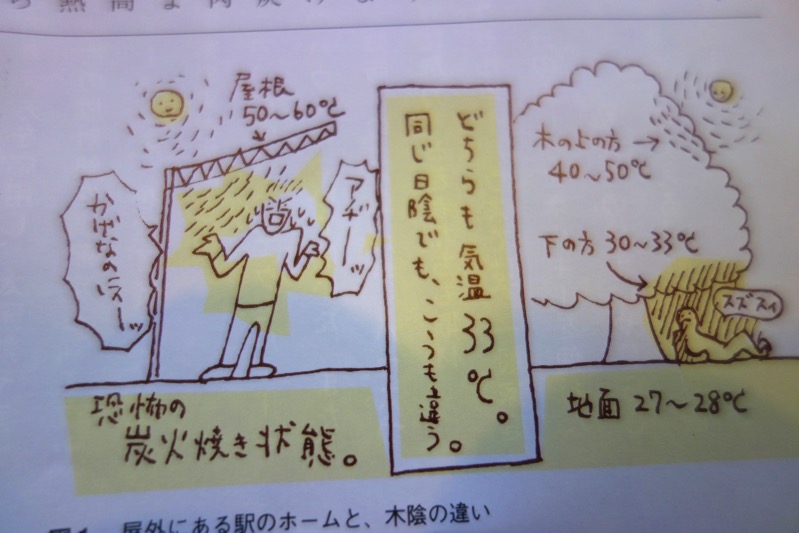 屋根
50〜60℃
かげなのにえーッ
アヂーーッ
どちらも気温33℃。
同じ日陰でも、こうも違う。
木の上の方→
40〜50℃
下の方 30〜33℃
スズスィ
恐怖の
炭火焼き状態。
地面 27〜28℃
屋外にある駅のホームと、木陰の違い